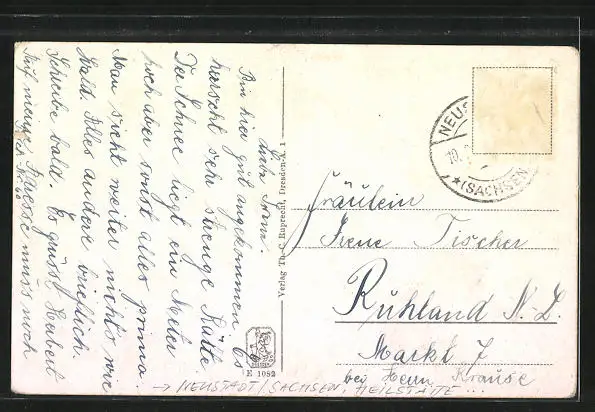 Liebe Irene.
Bin hier gut angekommen. Es
herrscht sehr strenge Kälte.
Der Schnee liegt ein Meter
hoch aber sonst alles prima.
Man sieht weiter nichts wie
Wald. Alles andere brieflich.
Schreibe bald. Es grüsst Herbert
meine Adresse muss noch
Verlag Th. C. Ruprecht, Dresden-A. 1
E 1082
NEUS
10.
★ (SACHSEN
Fräulein
Irene Tischer
Ruhland N.-L.
Markt 7
bei Herrn Krause
→ NEUSTADT/SACHSEN, HEILSTÄTTE ...